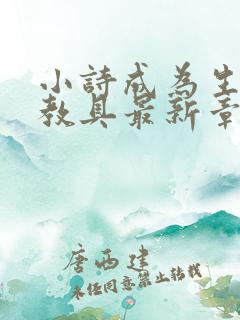 小詩成為生
教具最新章
唐西建
未经同意禁止转载